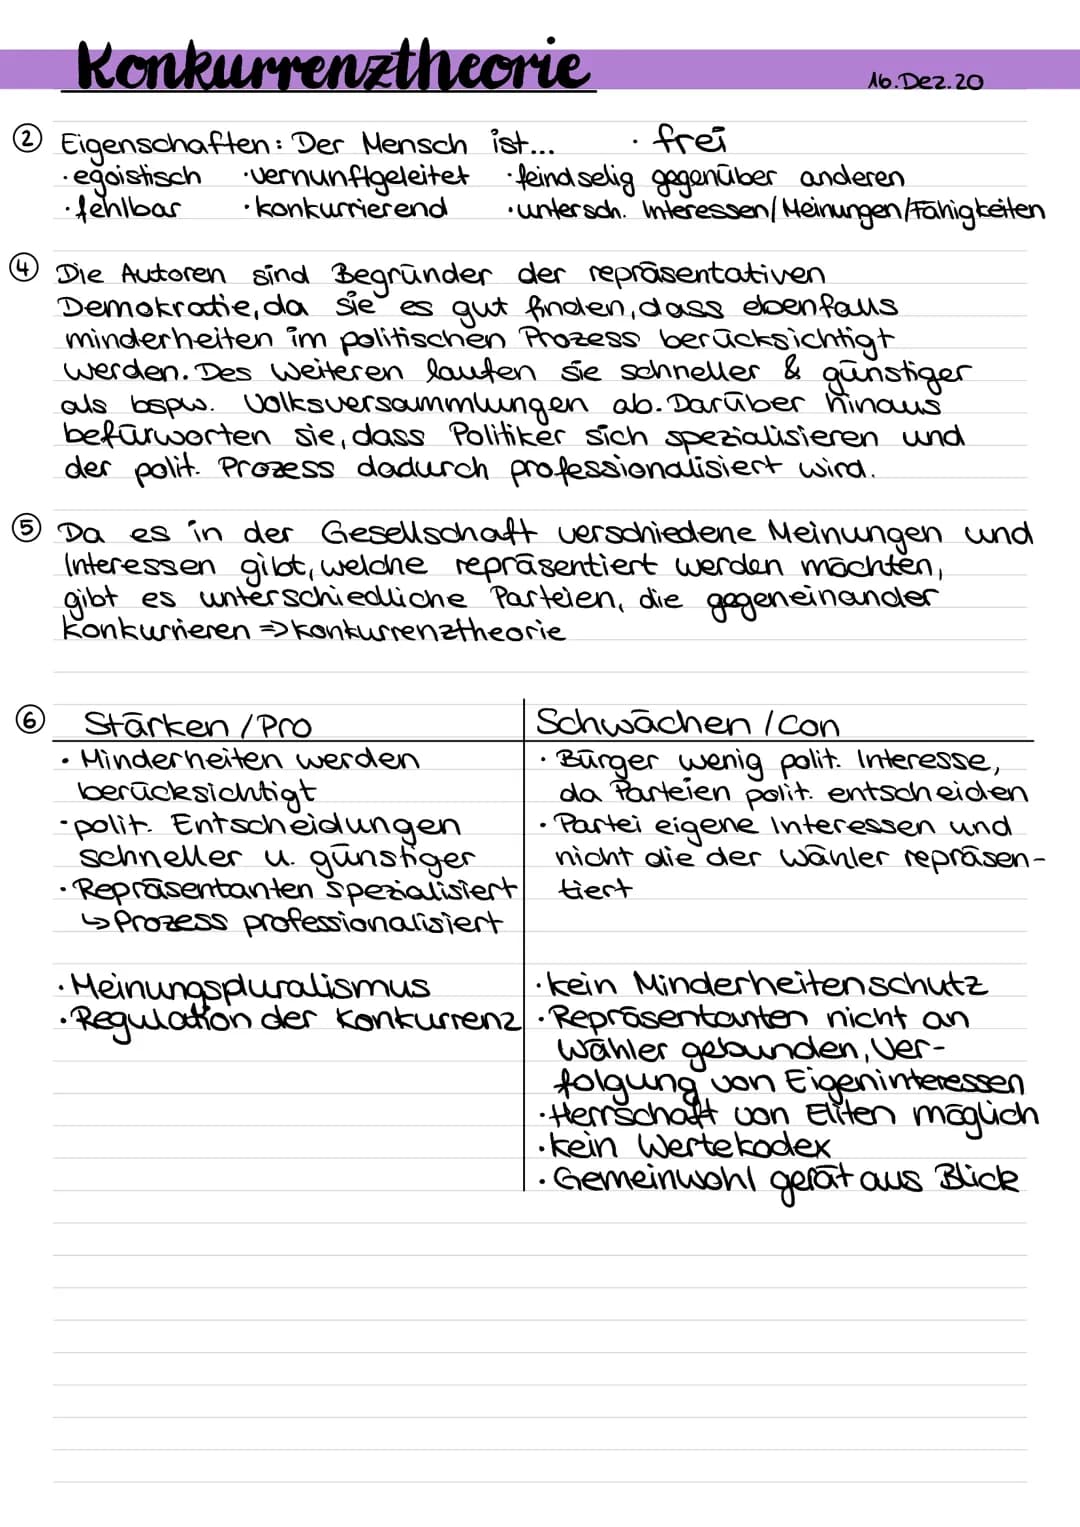 Konkurrenztheorie
16. Dez. 20
② Eigenschaften: Der Mensch ist... · frei
· egoistisch · vernunftgeleitet · feindselig gegenüber anderen
· fehlbar · konkurrierend · untersch. Interessen/Meinungen/Fähigkeiten
④ Die Autoren sind Begründer der repräsentativen
Demokratie, da sie es gut finden, dass ebenfalls
minderheiten im politischen Prozess berücksichtigt
werden. Des Weiteren laufen sie schneller & günstiger
als bspw. Volksversammlungen ab. Darüber hinaus
befürworten sie, dass Politiker sich spezialisieren und
der polit. Prozess dadurch professionalisiert wird.
⑤ Da es in der Gesellschaft verschiedene Meinungen und
Interessen gibt, welche repräsentiert werden möchten,
gibt es unterschiedliche Parteien, die gegeneinander
konkurrieren => Konkurrenztheorie
⑥ Stärken / Pro
· Minderheiten werden
berücksichtigt
· polit. Entscheidungen
schneller u. günstiger
· Repräsentanten spezialisiert
↳ Prozess professionalisiert
· Meinungspluralismus
· Regulation der Konkurrenz
Schwächen / Con
· Bürger wenig polit. Interesse,
da Parteien polit. entscheiden
· Partei eigene Interessen und
nicht die der Wähler repräsen-
tiert
· kein Minderheitenschutz
· Repräsentanten nicht an
Wähler gebunden, Ver-
folgung von Eigeninteressen
· Herrschaft von Eliten möglich
· kein Wertekodex
· Gemeinwohl gerät aus Blick